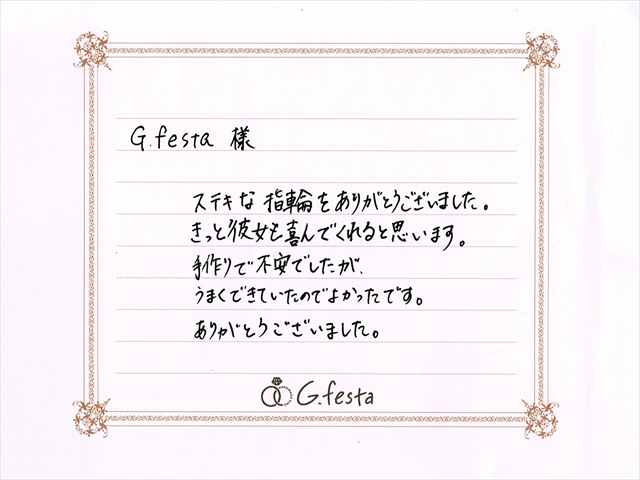 G.festa 様
ステキな指輪をありがとうございました。
きっと彼女も喜んでくれると思います。
手作りで不安でしたが、
うまくできていたのでよかったです。
ありがとうございました。
G.festa